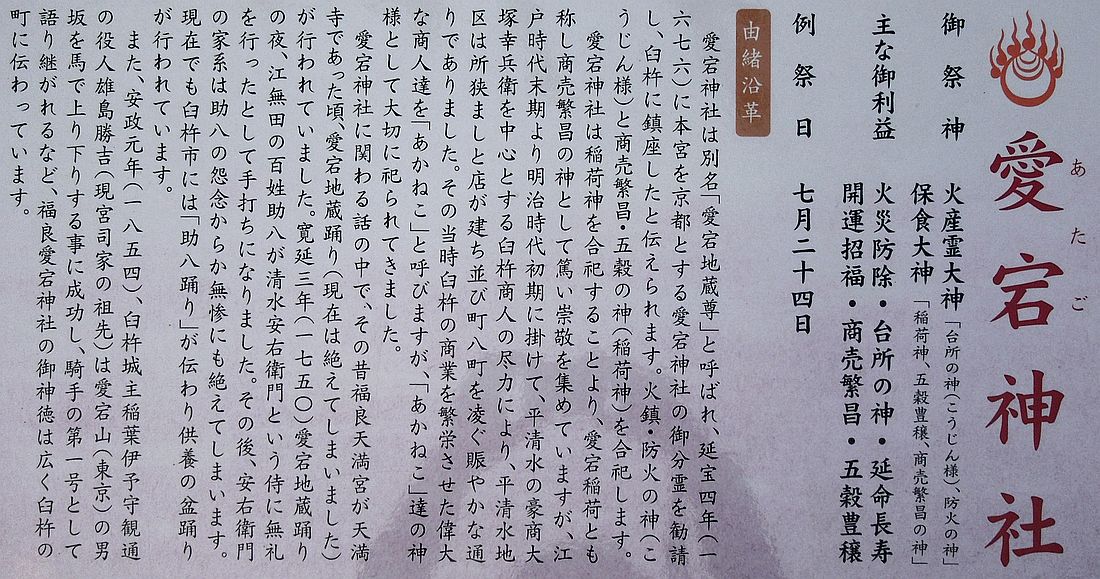 愛宕神社
あたご
御祭神
火産霊大神「台所の神(こうじん様)、防火の神」
保食大神「稲荷神、五穀豊穣、商売繁昌の神」
主な御利益
火災防除・台所の神・延命長寿
開運招福・商売繁昌・五穀豊穣
例祭日 七月二十四日
由緒沿革
愛宕神社は別名「愛宕地蔵尊」と呼ばれ、延宝四年(一
六七六)に本宮を京都とする愛宕神社の御分霊を勧請
し、臼杵に鎮座したと伝えられます。火鎮・防火の神(こ
うじん様)と商売繁昌・五穀の神(稲荷神)を合祀します。
愛宕神社は稲荷神を合祀することより、愛宕稲荷とも
称し商売繁昌の神として篤い崇敬を集めていますが、江
戸時代末期より明治時代初期に掛けて、平清水の豪商大
塚幸兵衛を中心とする臼杵商人の尽力により、平清水地
区は所狭ましと店が建ち並び町八町を凌ぐ賑やかな通
りでありました。その当時臼杵の商業を繁栄させた偉大
な商人達を「あかねこ」と呼びますが、「あかねこ」達の神
様として大切に祀られてきました。
愛宕神社に関わる話の中で、その昔福良天満宮が天満
寺であった頃、愛宕地蔵踊り(現在は絶えてしまいました)
が行われていました。寛延三年(一七五〇)愛宕地蔵踊り
の夜、江無田の百姓助八が清水安右衛門という侍に無礼
を行ったとして手打ちになりました。その後、安右衛門
の家系は助八の怨念からか無惨にも絶えてしまいます。
現在でも臼杵市には「助八踊り」が伝わり供養の盆踊り
が行われています。
また、安政元年(一八五四)、臼杵城主稲葉伊予守観通
の役人雄島勝吉(現宮司家の祖先)は愛宕山(東京)の男
坂を馬で上り下りする事に成功し、騎手の第一号として
語り継がれるなど、福良愛宕神社の御神徳は広く臼杵の
町に伝わっています。